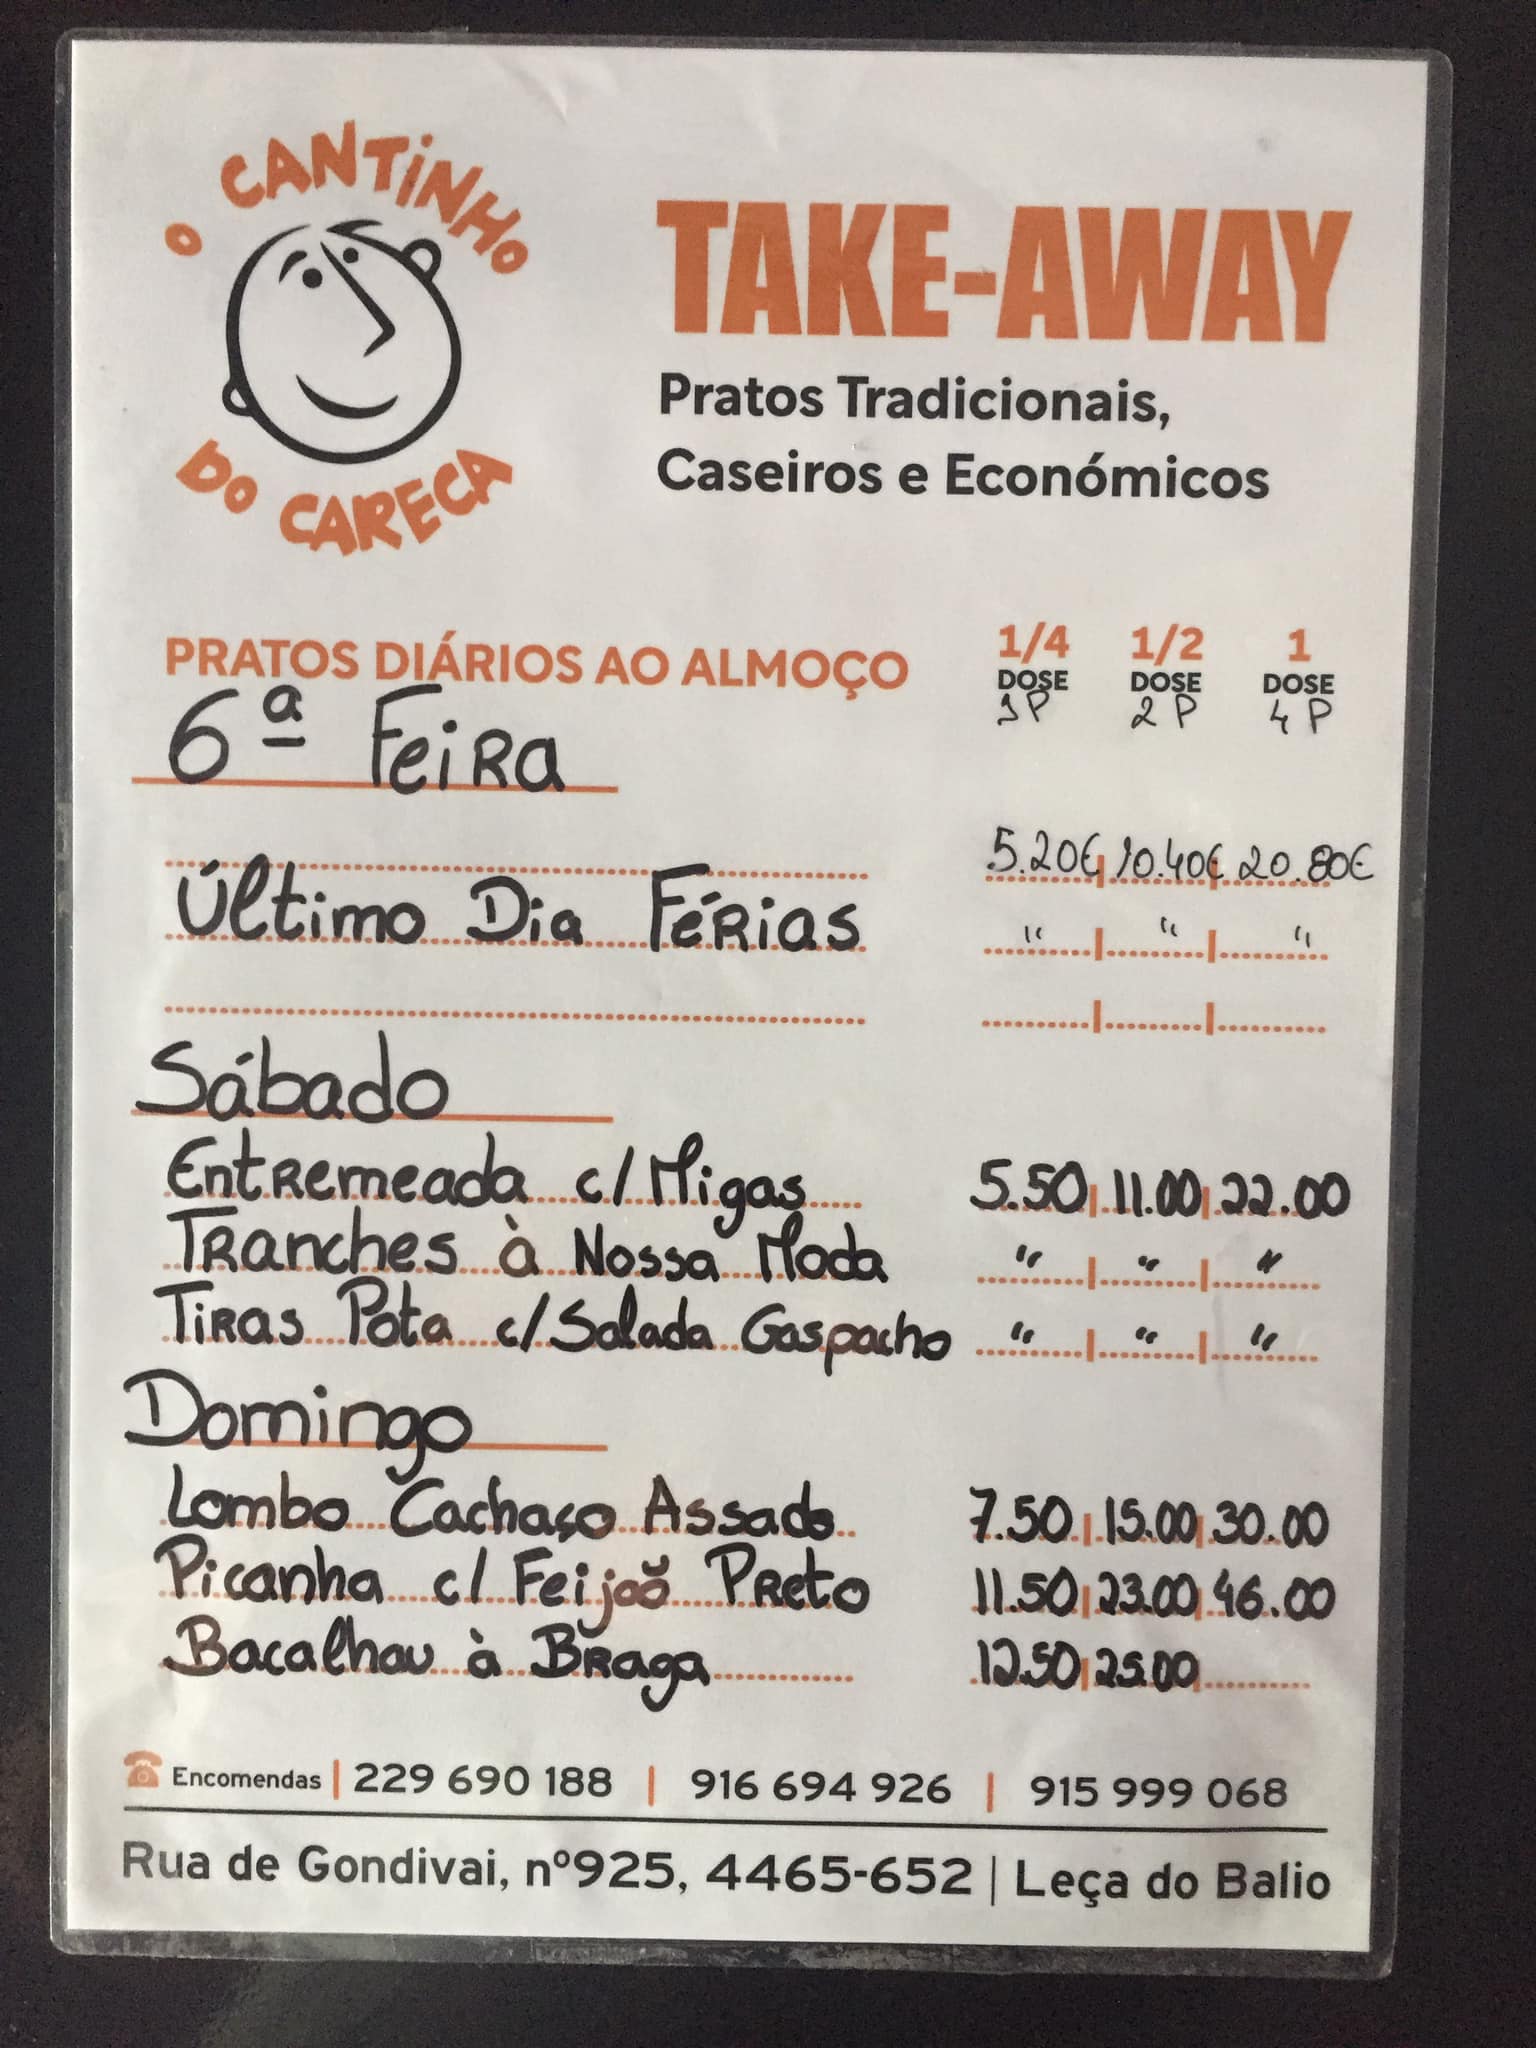 O CANTINHO
DO CARECA
TAKE-AWAY
Pratos Tradicionais,
Caseiros e Económicos
PRATOS DIÁRIOS AO ALMOÇO 1/4 DOSE 1/2 DOSE 1 DOSE
1P 2P 4P
6ª Feira
5.20€ 10.40€ 20.80€
Último Dia Férias " " "
Sábado
Entremeada c/ Migas 5.50 11.00 22.00
Tranches à Nossa Moda " " "
Tiras Pota c/ Salada Gaspacho " " "
Domingo
Lombo Cachaço Assado 7.50 15.00 30.00
Picanha c/ Feijoõ Preto 11.50 23.00 46.00
Bacalhau à Braga 12.50 25.00
Encomendas | 229 690 188 | 916 694 926 | 915 999 068
Rua de Gondivai, nº925, 4465-652 | Leça do Balio